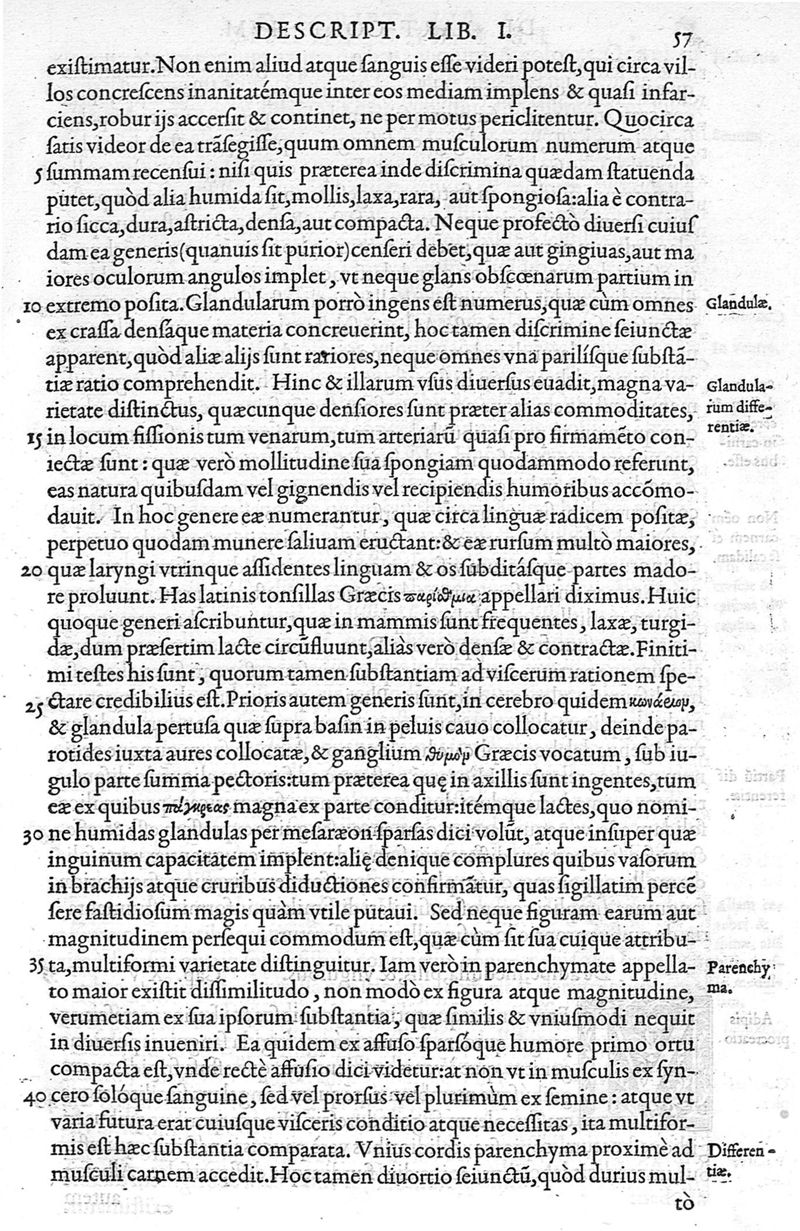 DESCRIPT. LIB. I. 57
exiſtimatur.Non enim aliud atque ſanguis eſſe videri poteſt,qui circa vil-
los concreſcens inanitatémque inter eos mediam implens & quaſi infar-
ciens,robur ijs accerſit & continet, ne per motus periclitentur. Quocirca
ſatis videor de ea trãſegiſſe,quum omnem muſculorum numerum atque
5 ſummam recenſui : niſi quis præterea inde diſcrimina quædam ſtatuenda
putet,quòd alia humida ſit,mollis,laxa,rara, aut ſpongioſa:alia è contra-
rio ſicca,dura,aſtricta,denſa,aut compacta. Neque profectò diuerſi cuiuſ
dam ea generis(quanuis ſit purior)cenſeri debet,quæ aut gingiuas,aut ma
iores oculorum angulos implet, vt neque glans obſcœnarum partium in
10 extremo poſita.Glandularum porrò ingens eſt numerus,quæ cùm omnes
Glandulæ.
ex craſſa denſáque materia concreuerint, hoc tamen diſcrimine ſeiunctæ
apparent,quòd aliæ alijs ſunt rariores,neque omnes vna parilíſque ſubſtã-
tiæ ratio comprehendit. Hinc & illarum vſus diuerſus euadit,magna va-
Glandula-
rietate diſtinctus, quæcunque denſiores ſunt præter alias commoditates,
rum diffe-
15 in locum fiſſionis tum venarum,tum arteriarũ quaſi pro firmamẽto con-
rentiæ.
iectæ ſunt : quæ verò mollitudine ſua ſpongiam quodammodo referunt,
eas natura quibuſdam vel gignendis vel recipiendis humoribus accõmo-
dauit. In hoc genere eæ numerantur, quæ circa linguæ radicem poſitæ,
perpetuo quodam munere ſaliuam eructant:& eæ rurſum multò maiores,
20 quæ laryngi vtrinque aſſidentes linguam & os ſubditáſque partes mado-
re proluunt. Has latinis tonſillas Græcis παρίσθμια appellari diximus.Huic
quoque generi aſcribuntur,quæ in mammis ſunt frequentes, laxæ, turgi-
dæ,dum præſertim lacte circũfluunt,aliàs verò denſæ & contractæ.Finiti-
mi teſtes his ſunt, quorum tamen ſubſtantiam ad viſcerum rationem ſpe-
25 ctare credibilius eſt.Prioris autem generis ſunt,in cerebro quidem κωνάειον,
& glandula pertuſa quæ ſupra baſin in peluis cauo collocatur, deinde pa-
rotides iuxta aures collocatæ,& ganglium θυμὸν Græcis vocatum, ſub iu-
gulo parte ſumma pectoris:tum præterea quę in axillis ſunt ingentes,tum
eæ ex quibus πάγκρεας magna ex parte conditur:itémque lactes,quo nomi-
30 ne humidas glandulas per meſaræon ſparſas dici volũt, atque inſuper quæ
inguinum capacitatem implent:alię denique complures quibus vaſorum
in brachijs atque cruribus diductiones confirmãtur, quas ſigillatim percẽ
ſere faſtidioſum magis quàm vtile putaui. Sed neque figuram earum aut
magnitudinem perſequi commodum eſt,quæ cùm ſit ſua cuique attribu-
35 ta,multiformi varietate diſtinguitur. Iam verò in parenchymate appella-
Parenchy
to maior exiſtit diſſimilitudo, non modò ex figura atque magnitudine,
ma.
verumetiam ex ſua ipſorum ſubſtantia, quæ ſimilis & vniuſmodi nequit
in diuerſis inueniri. Ea quidem ex affuſo ſparſóque humore primo ortu
compacta eſt,vnde rectè affuſio dici videtur:at non vt in muſculis ex ſyn-
40 cero ſolóque ſanguine, ſed vel prorſus vel plurimùm ex ſemine : atque vt
varia futura erat cuiuſque viſceris conditio atque neceſſitas, ita multifor-
mis eſt hæc ſubſtantia comparata. Vnius cordis parenchyma proximè ad
Differen-
muſculi carnem accedit.Hoc tamen diuortio ſeiunctũ,quòd durius mul-
tiæ.
tò